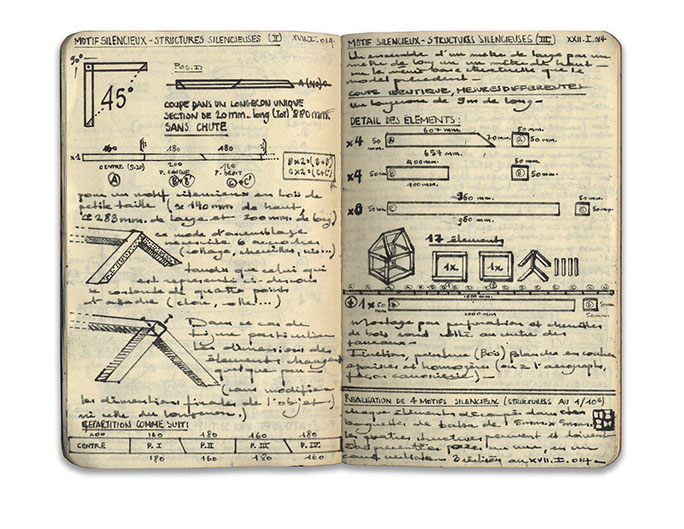 MOTIF SILENCIEUX - STRUCTURES SILENCIEUSES (II) XVII.I.014
90°
45°
Pos. I)
COUPE DANS UN LONGERON UNIQUE
SECTION DE 20mm. long (Tot) 880 mm.
SANS CHUTE
x1
160 180 180
CENTRE
200
160
P. DROIT
A
B+B'
C+C'
pour un motif silencieux en bois de
petite taille (± 140 mm. de haut,
± 283 mm. de large et 200 mm. de long)
ce mode d'assemblage
nécessite 6 accroches
(collage, chevilles, vis...)
tandis que celui qui
est représenté ci-dessous
se contente de quatre points
d'attache (clou, colle...)
Dans ce cas de
figure particulier
les dimensions des
éléments changent
quelque peu
(sans modifier
les dimensions finales de l'objet
ni celle du longeron.)
RÉPARTITION COMME SUIT:
200 160 180 160 180
CENTRE P. I P. II P. III P. IV
180 160 180 160
MOTIF SILENCIEUX - STRUCTURES SILENCIEUSES (III) XXII.I.014
Un ensemble d'un mètre de large par un
mètre de long ou un mètre de haut
sur la même base structurelle que le
model précédent -
COUPE IDENTIQUE, MESURES DIFFÉRENTES
un longeron de 9m de long -
DETAIL DES ÉLÉMENTS:
x4 50 mm. 607 mm. 70mm. 50 mm. 50mm.
657 mm.
x4 50 mm. 400mm. 50mm. 50mm.
400mm.
50mm. 960 mm. 50 mm. 50mm.
960 mm.
17 éléments
1x. 1x.
1x 50 mm. 1000 mm. 50 mm. 50 mm.
1000 mm.
Montage par perforation et chevilles
de bois
Finition, peinture (Bois) Blanche en couches
RÉALISATION DE 4 MOTIFS SILENCIEUX (STRUCTURES AU 1/10°)
chaque éléments découpés dans des
baguettes de balsa de 5mm x 5mm
les quatres structures peuvent et doivent
XVII.I.014 -